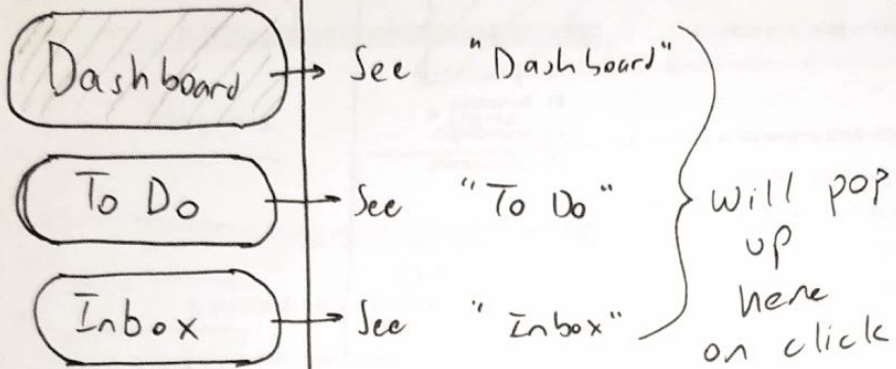 Dashboard → See "Dashboard"
To Do → See "To Do"
Inbox → See "Inbox"
will pop
up
here
on click